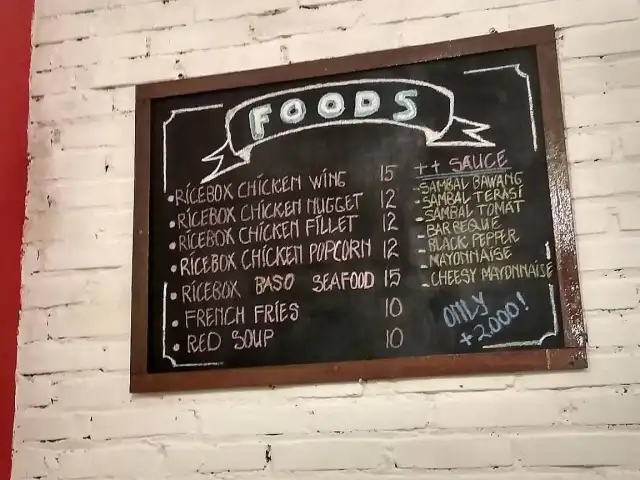 FOODS
• RICEBOX CHICKEN WING 15
• RICEBOX CHICKEN NUGGET 12
• RICEBOX CHICKEN FILLET 12
• RICEBOX CHICKEN POPCORN 12
• RICEBOX BASO SEAFOOD 15
• FRENCH FRIES 10
• RED SOUP 10
++ SAUCE
- SAMBAL BAWANG
- SAMBAL TERASI
- SAMBAL TOMAT
- BARBEQUE
- BLACK PEPPER
- MAYONNAISE
- CHEESY MAYONNAISE
ONLY
+2000!